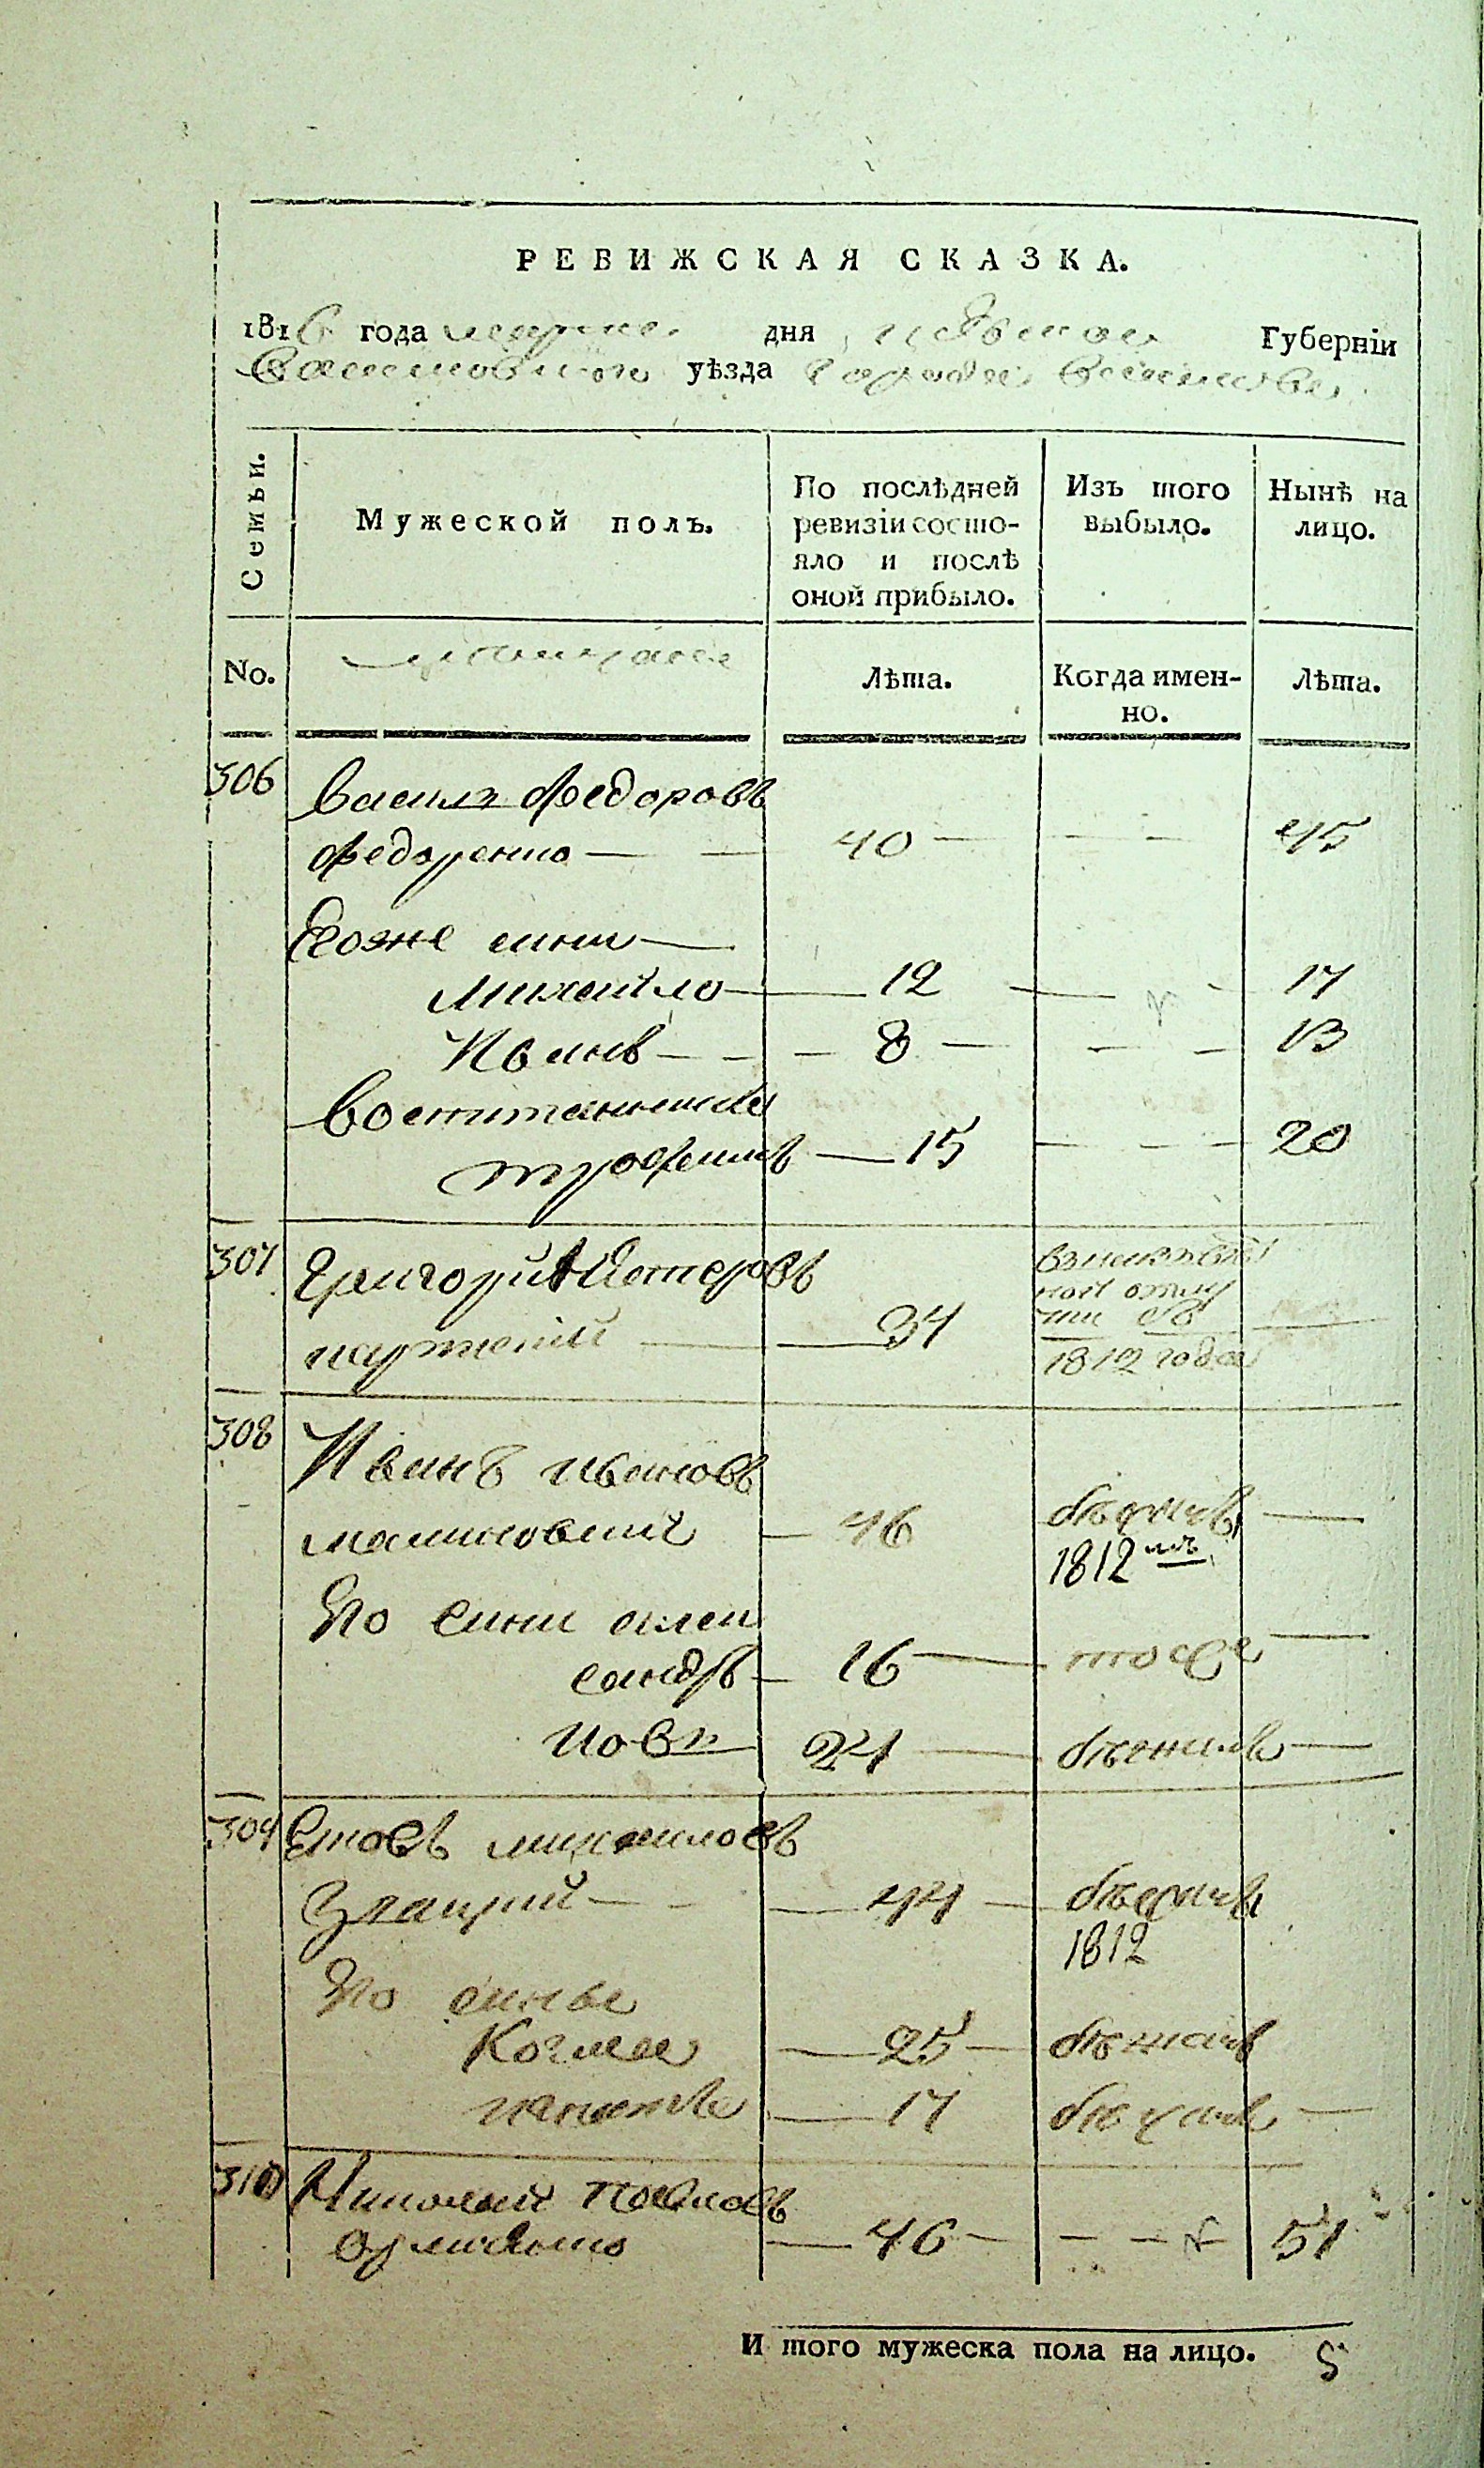 РЕВИЖСКАЯ СКАЗКА.
1816 года марта дня Киевской Губерніи
уѣзда города
Семьи.
Мужеской полъ.
По послѣдней
ревизіи состо-
яло и послѣ
оной прибыло.
Изъ того
выбыло.
Нынѣ на
лицо.
No.
Лѣта.
Когда имен-
но.
Лѣта.
306 Василь Федоровъ
Федоренко — — 40 — — — 45
Егоже сини —
Михайло — — 12 — — 17
Иванъ — — — 8 — — — 13
Воспитанникъ
трофимъ — 15 — — — 20
307 Григорій Петеровъ
— — 34
1812 года —
308 Иванъ Ивановъ
малиновский — 46 бѣжалъ —
1812 мъ
Его сини алек
сандръ — 16 — тоже —
Иовъ 24 — бѣжалъ —
309 михайловъ
— — — 44 — бѣжалъ
1812
Его синье
Козма — 25 — бѣжалъ
игнатъ — 17 бѣжалъ —
310 Николай Павловъ
— 46 — — — 51
И того мужеска пола на лицо. 5